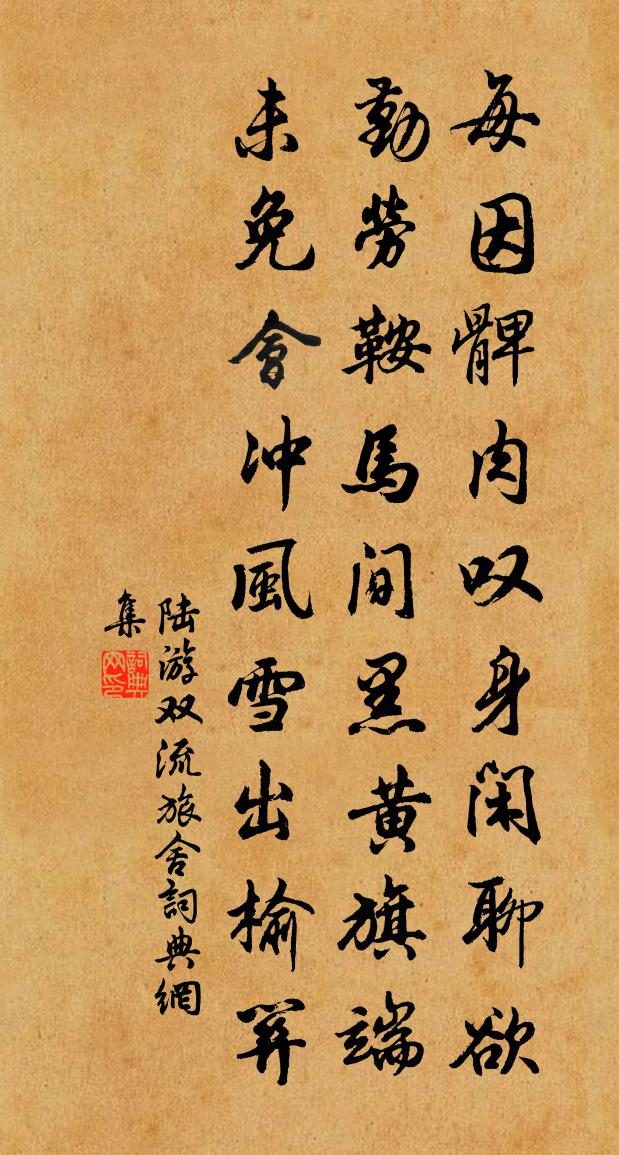 每因髀肉叹身閑聊欲
勤勞鞍馬間黑黄旗端
未免會冲風雪出榆关
陆游双流旅舍詞典網
集
詞典网印